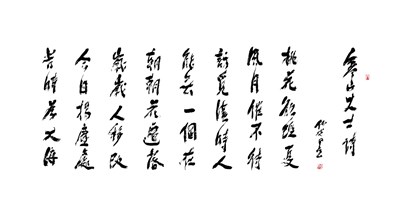 寒山大士詩
桃花欲經夏
風月催不待
訪覓漢時人
能無一個在
朝朝花遷落
歲歲人移改
今日揚塵處
昔時為大海